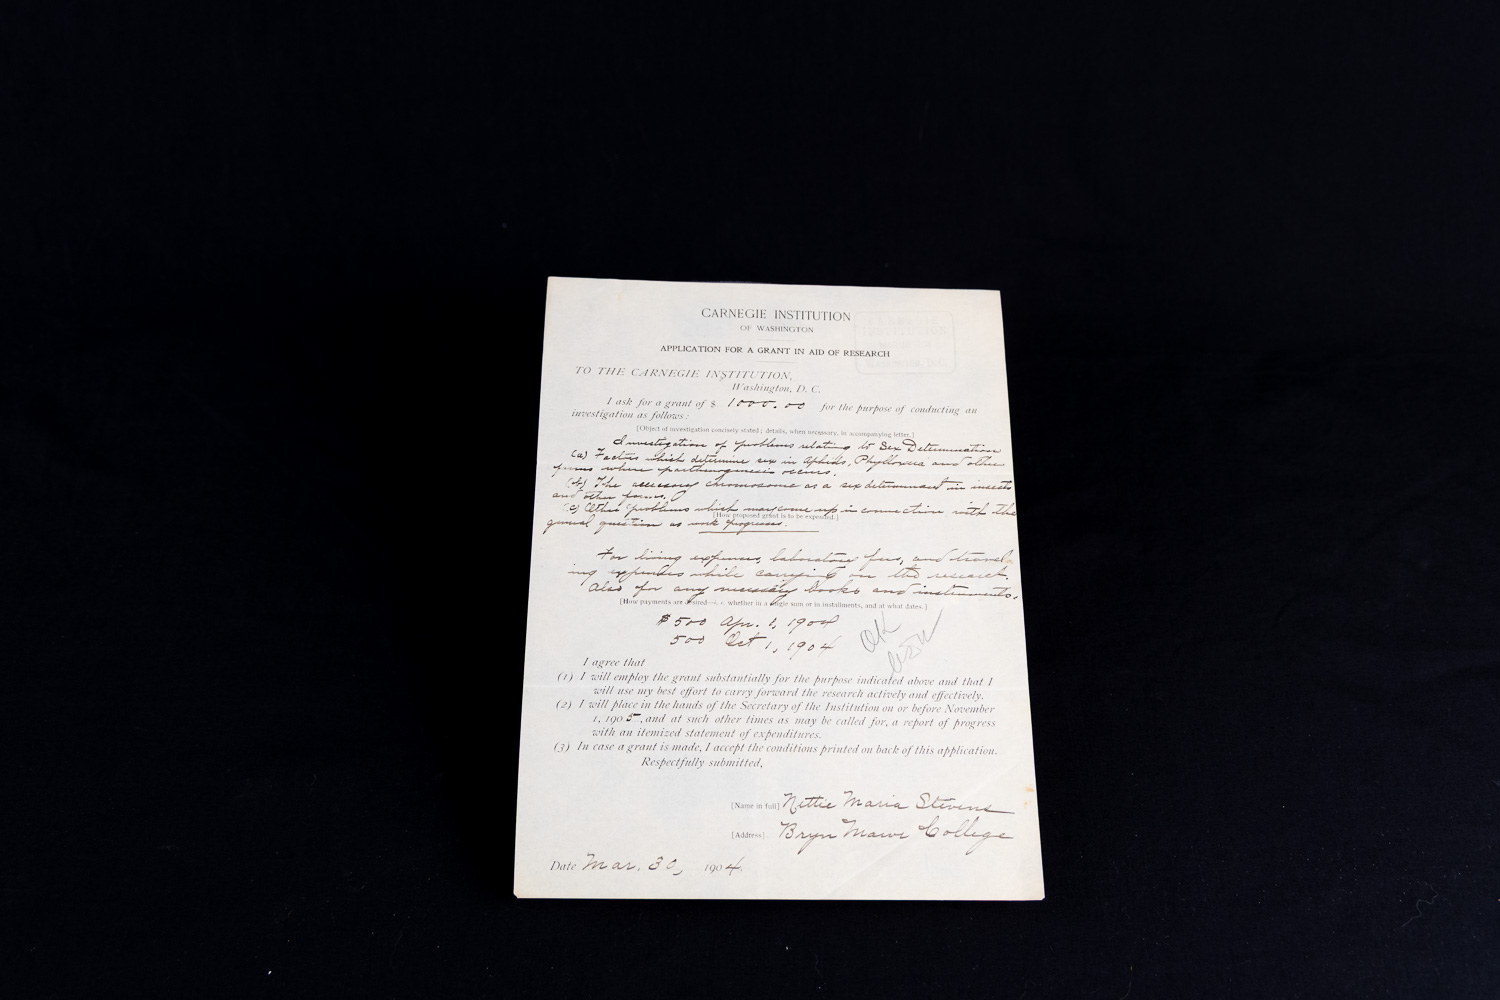 CARNEGIE INSTITUTION
OF WASHINGTON
APPLICATION FOR A GRANT IN AID OF RESEARCH
TO THE CARNEGIE INSTITUTION,
Washington, D. C.
I ask for a grant of $ 1000.00 for the purpose of conducting an
investigation as follows:
[Object of investigation concisely stated; details, when necessary, in accompanying letter.]
Investigation of problems relating to Sex Determination
(a) Factors which determine sex in Aphids, Phylloxera and other
forms where parthenogenesis occurs.
(b) The accessory chromosome as a sex determinant in insects
and other forms.
(c) Other problems which may come up in connection with the
[How proposed grant is to be expended.]
general question as work progresses.
For living expenses, laboratory fees, and travel-
ing expenses while carrying on the research.
Also for any necessary books and instruments.
[How payments are desired—i. e. whether in a single sum or in installments, and at what dates.]
$500 Apr. 1, 1904
500 Oct 1, 1904
OK
I agree that
(1) I will employ the grant substantially for the purpose indicated above and that I
will use my best effort to carry forward the research actively and effectively.
(2) I will place in the hands of the Secretary of the Institution on or before November
1, 1905, and at such other times as may be called for, a report of progress
with an itemized statement of expenditures.
(3) In case a grant is made, I accept the conditions printed on back of this application.
Respectfully submitted,
[Name in full] Nettie Maria Stevens
[Address] Bryn Mawr College
Date Mar. 30, 1904.